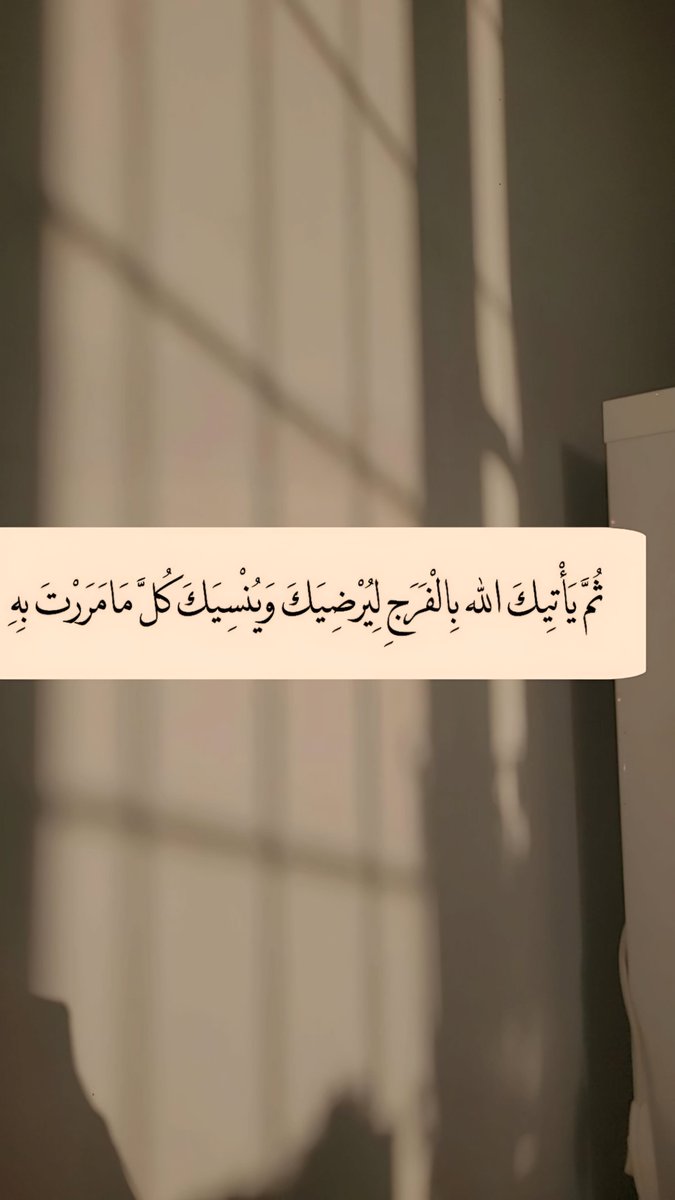 ثُمَّ يَأْتِيكَ الله بِالْفَرَجِ لِيُرْضِيَكَ وَيُنْسِيَكَ كُلَّ مَا مَرَرْتَ بِهِ